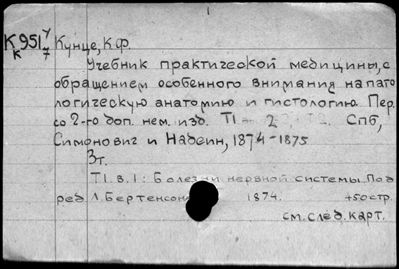 1
K 951 у/7 Кунце, К.Ф.
к
Учебник практической медицины, с
обращением особенного внимания на пато
логическую анатомию и гистологию. Пер.
со 2-го доп. нем. изд. Т1 - 2 СПб,
Симонович и Надеин, 1874-1875
3т.
Т1.в.1: Болезни нервной системы. Под
ред Л. Бертенсона 1874. 450стр.
см. след. карт.